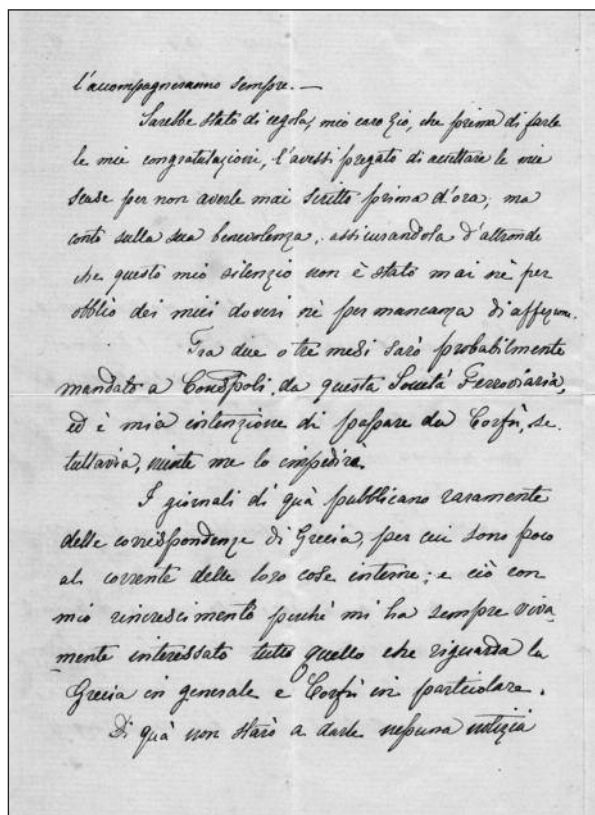 l'accompagneranno sempre. —
Sarebbe stato di regola, mio caro Zio, che prima di farle
le mie congratulazioni, l'avessi pregato di accettare le mie
scuse per non averle mai scritto prima d'ora, ma
conto sulla sua benevolenza, assicurandola d'altronde
che questo mio silenzio non è stato mai nè per
obblio dei miei doveri nè per mancanza di affezione.
Fra due o tre mesi sarò probabilmente
mandato a Conspoli, da questa Società Ferroviaria,
ed è mia intenzione di passare da Corfù, se
tuttavia, niente me lo impedirà.
I giornali di quà pubblicano raramente
delle corrispondenze di Grecia, per cui sono poco
al corrente delle loro cose interne; e ciò con
mio rincrescimento perchè mi ha sempre viva
mente interessato tutto quello che riguarda la
Grecia in generale e Corfù in particolare.
Di quà non starò a darle nessuna notizia